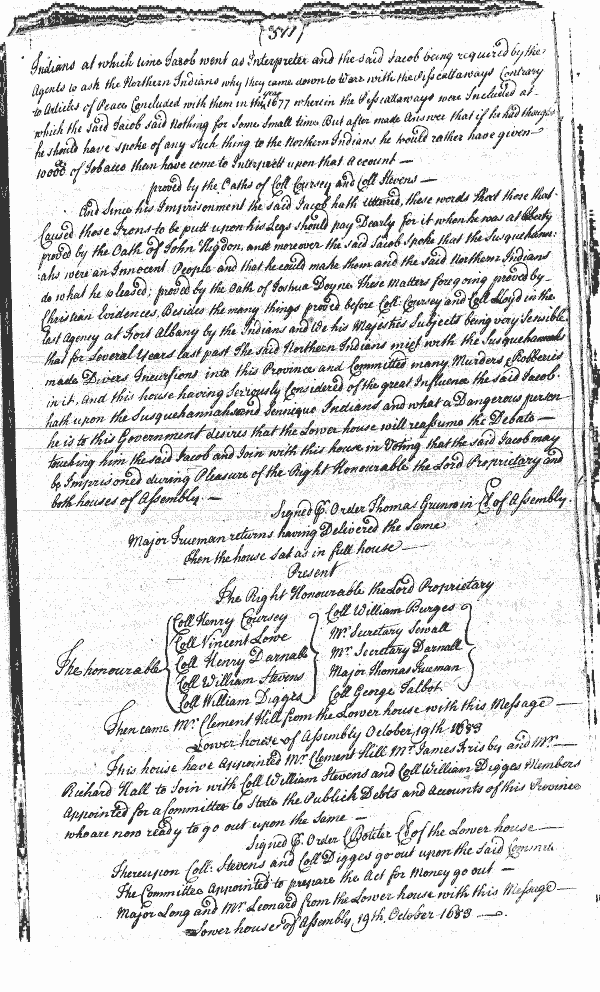 (511)
Indians at which time Jacob went as Interpreter and the said Jacob being required by the
Agents to ask the Northern Indians why they came down to Warr with the Pisscattaways Contrary
to Articles of Peace Concluded with them in the year 1677 wherein the Pisscattaways were Included at
which the said Jacob said Nothing for Some Small time But after made Answer that if he had thought
he should have spoke of any Such thing to the Northern Indians he would rather have given
10000 of Tobacco then have come to Interpret upon that Account —
proved by the Oaths of Coll Coursey and Coll Stevens —
And Since his Imprisonment the said Jacob hath uttered, these words that those that
Caused those Irons to be putt upon his Legs should pay Dearly for it when he was at liberty
proved by the Oath of John Rigdon, and moreover the said Jacob spoke that the Susquehann-
ahs were an Innocent People and that he could make them and the said Northern Indians
do what he pleased; proved by the Oath of Joshua Doyne, these Matters foregoing proved by
Christian Evidences, Besides the many things proved before Coll: Coursey and Coll Lloyd in the
last Agency at Fort Albany by the Indians and We his Majestys Subjects being very Sensible
that for Several Years last past The said Northern Indians mixt with the Susquehannahs
made Divers Incursions into this Province and Committed many Murders & Robberies
in it. And this house having Seriously Considered of the great Influence the said Jacob
hath upon the Susquehannahs and Senneque Indians and what a Dangerous person
he is to this Government desires that the Lower house will reassume the Debate —
touching him the said Jacob and Join with this house in Voting that the said Jacob may
be Imprisoned during Pleasure of the Right Honourable the Lord Proprietary and
both houses of Assembly. —
Signed P. Order Thomas Grunwin Cl of Assembly.
Major Trueman returns having Delivered the same
Then the house sat as in full house —
Present
The Right Honourable the Lord Proprietary
The honourable
Coll Henry Coursey
Coll Vincent Lowe
Coll Henry Darnall
Coll William Stevens
Coll William Digges
Coll William Burges
Mr. Secretary Sewall
Mr. Secretary Darnall
Major Thomas Trueman
Coll George Talbot
Then came Mr. Clement Hill from the Lower house with this Message —
Lower house of Assembly October 19th 1683
This house have Appointed Mr Clement Hill Mr. James Frisby and Mr. —
Richard Hall to Join with Coll William Stevens and Coll William Digges Members
Appointed for a Committee to State the Publick Debts and Accounts of this Province
who are now ready to go out upon the Same —
Signed P. Order Boteler Cl of the Lower house —
Thereupon Coll: Stevens and Coll Digges go out upon the Said Committee
The Committee Appointed to prepare the Act for Money go out —
Major Long and Mr. Leonard from the Lower house with this Message —
Lower house of Assembly, 19th. October 1683 —.